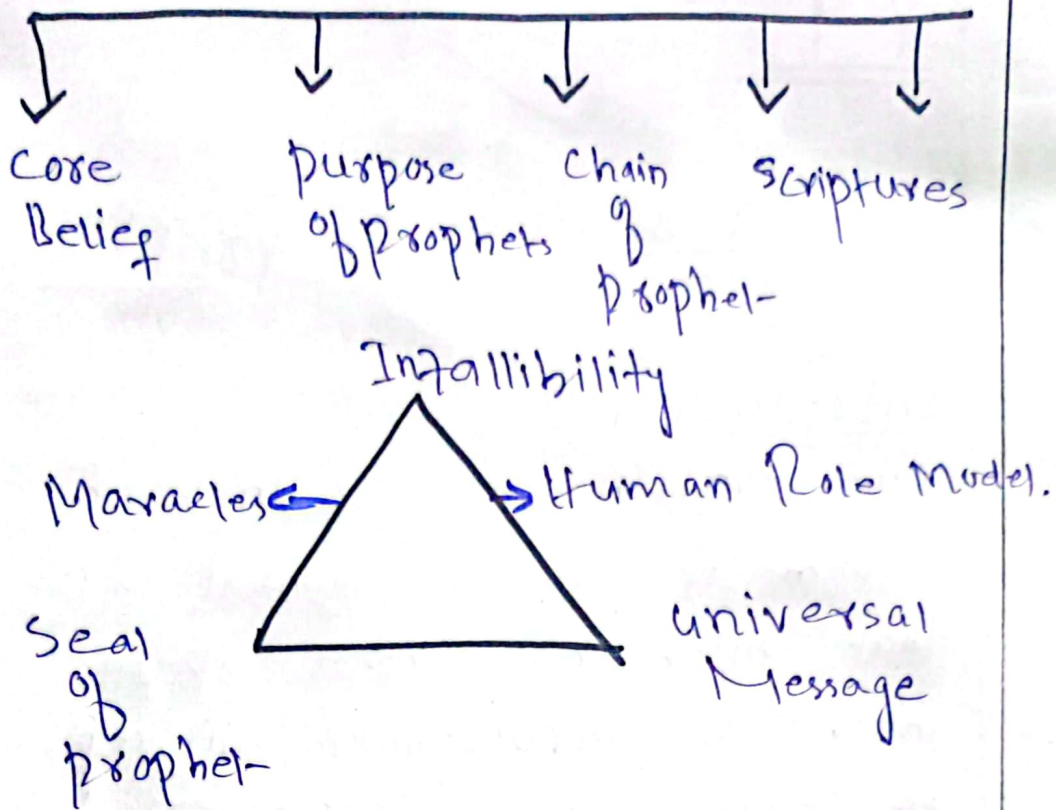 Core
Belief
Purpose
of Prophets
Chain
of
Prophet
Scriptures
Infallibility
Maracles
Human Role Model.
Seal
of
prophet
universal
Message